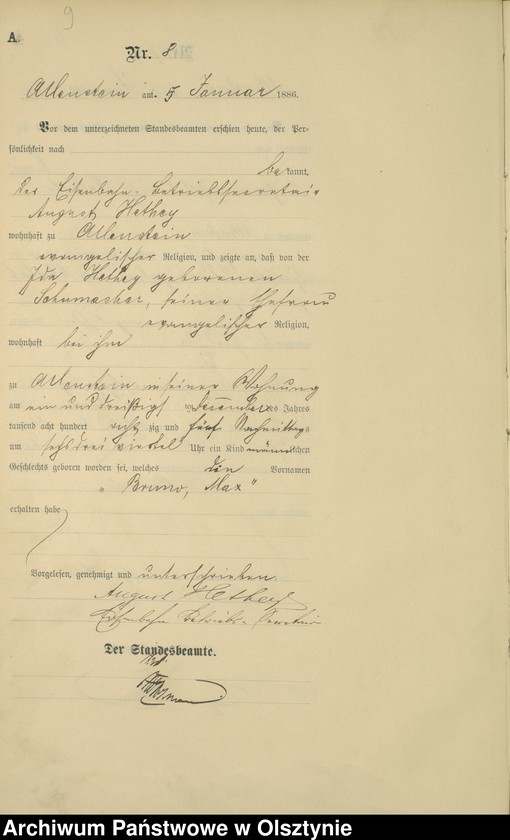 9
A.
Nr. 8
Allenstein am 5 Januar 1886.
Vor dem unterzeichneten Standesbeamten erschien heute, der Per-
sönlichkeit nach
bekannt,
der Eisenbahn-Betriebssecretair
August Hethey
wohnhaft zu Allenstein
evangelischer Religion, und zeigte an, daß von der
Ida Hethey geborenen
Schumacher, seiner Ehefrau
evangelischer Religion,
wohnhaft bei ihm
zu Allenstein in seiner Wohnung
am ein und dreißigsten December des Jahres
tausend acht hundert achtzig und fünf Nachmittags
um sechs drei viertel Uhr ein Kind männlichen
Geschlechts geboren worden sei, welches die Vornamen
„Bruno, Max"
erhalten habe
Vorgelesen, genehmigt und unterschrieben.
August Hethey
Eisenbahn Betriebs-Secretär
Der Standesbeamte.
Archiwum Państwowe w Olsztynie